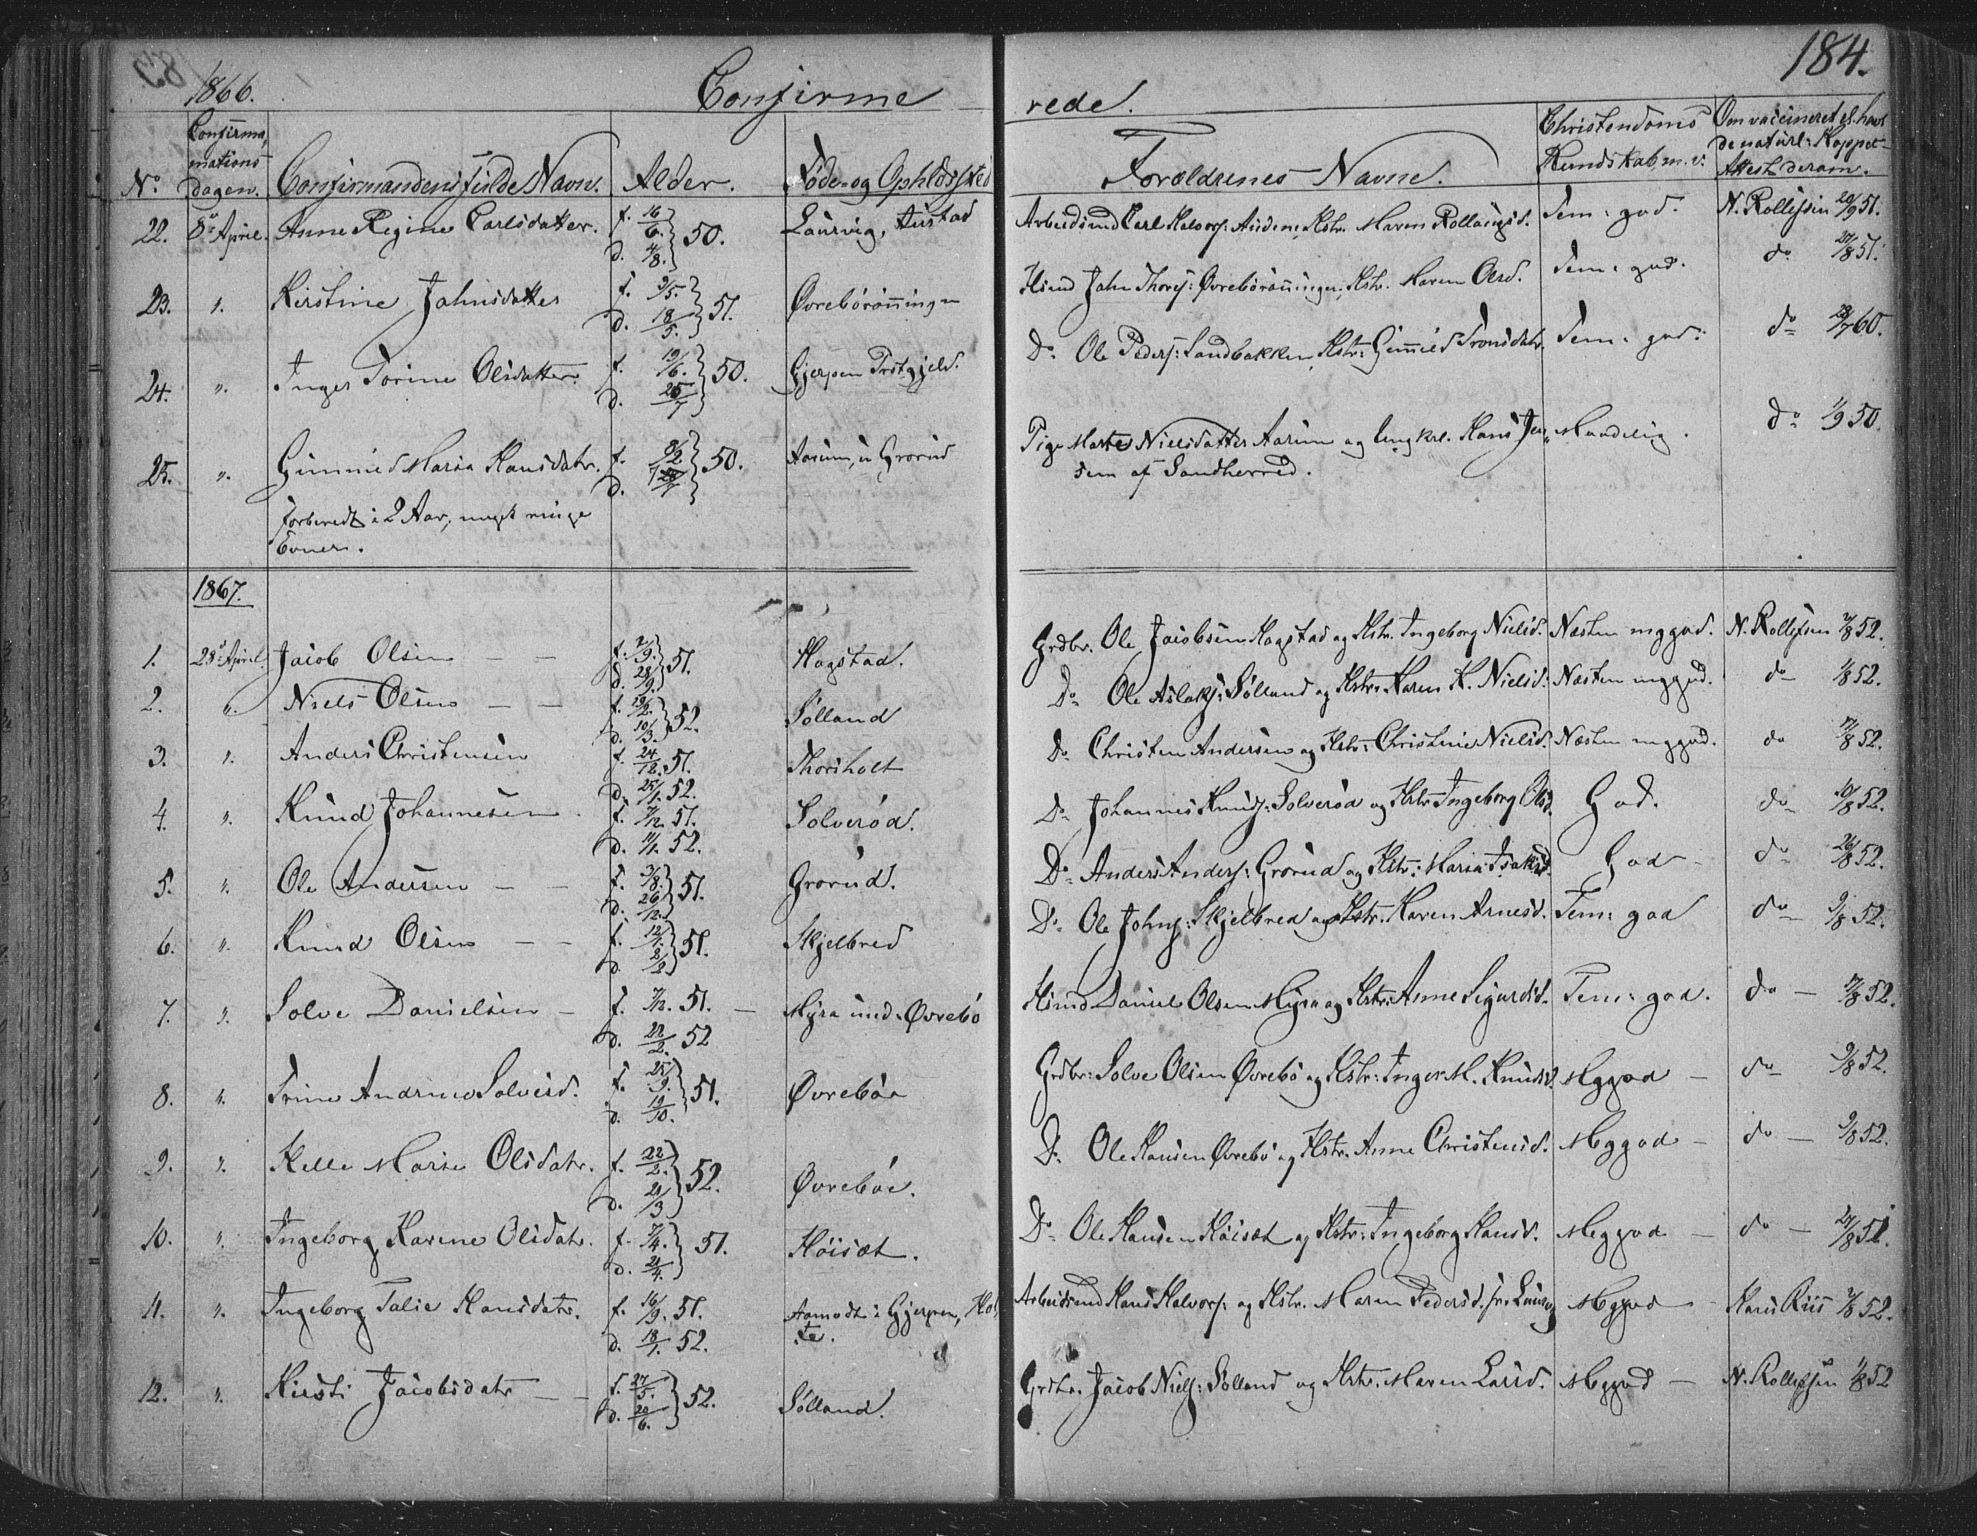 184.
1866. Confirme rede.
No. Confirmationsdagen. Confirmandens fulde Navn. Alder. Føde- og Opholdssted Forældrenes Navne. Christendoms Kundskab m. v. Om vaccineret el. havt de naturl: Kopper Attest derom.
22. 8de April. Anne Regine Carlsdatter. f. 16/6. d. 4/8. 50. Laurvig, Carl Halvors: Hstr. Maren Tem: god. N. Rollefsen 20/9 51.
23. ". Kirstine Johnsdatter f. 9/5. d. 18/5. 51. Øvrebörönningen Hsmd John Thors: Øvrebörönningen, Hstr. Maren Olsd. Tem: god. do 27/8 51.
24. ". Inger Torine Olsdatter. f. 19/6. d. 25/7 50. Gjerpen Prstgjeld. Do Ole Peders: Sandbakken, Hstr: Gunnild Tronsdatr. Tem: god: do 28/7 60.
25. ". Gunnild Maria Hansdatr. f. 9/2. d. 50. Aarum, u Grorud Pige Marte Nielsdatter Aarum og Ungkrl. Hans Jen- Maadelig. do 1/9 50.
sen af Sandherred.
Forberedt i 2 Aar, meget ringe
Evner.
1867.
1. 28de April. Jacob Olsen — — f. 2/9. d. 28/9. 51. Hogstad. Grdbr. Ole Jacobsen Hogstad og Hstr. Ingeborg Nielsd. Næsten mggod. N. Rollefsen 2/8 52.
2. ". Niels Olsen — — f. 19/2. d. 10/3. 52. Sølland Do Ole Aslaks: Sølland og Hstr. Karen K. Nielsd: Næsten mggod. do 1/8 52.
3. ". Anders Christensen f. 24/12. 51. d. 25/1. 52. Thorsholt Do Christen Andersen og Hstr: Christine Nielsd. Næsten mggod. do 17/8 52.
4. ". Knud Johannesen f. 7/12. 51. d. 11/1. 52. Solverød. Do Johannes Knuds: Solverød og Hstr Ingeborg Olsd. God. do 10/8 52.
5. ". Ole Andersen — — f. 3/8. d. 26/12. 51. Grorud. Do Anders Anders: Grorud og Hstr: Maria Isaksd. God — do 26/8 52.
6. ". Knud Olsen — — f. 12/1. d. 8/2. 51. Skjelbred Do Ole Johns: Skjelbred og Hstr. Karen Arnesd. Tem: god do 9/8 52.
7. ". Solve Danielsen — f. 7/12. 51. — d. 22/2. 52 Myra und. Øvrebö Hsmd Daniel Olsen Myra og Hstr: Anne Sigurdsd. Tem: god. do — 17/8 52.
8. ". Trine Andrine Solvesd. f. 25/9. d. 19/10. 51. Øvrebøe Grdbr: Solve Olsen Øvrebö og Hstr: Inger M. Knudsd. Mggod — do 9/8 52.
9. ". Helle Marie Olsdatr. f. 22/2. d. 21/3 52. Øvrebøe. Do Ole Hansen Øvrebö og Hstr. Anne Christensd. Meggod — do — 9/8 52.
10. ". Ingeborg Karine Olsdatr. f. 7/4. d. 21/4. 51. Höisæt. Do Ole Hansen Höisæt og Hstr: Ingeborg Hansd. Meggod — do — 27/8 51.
11. ". Ingeborg Talie Hansdatr. f. 16/9. 51. d. 18/1. 52. Aamodt i Gjerpen, Hol- Hans Halvors: og Hstr. Maren Pedersd. Meggod — Hans Riis 2/8 52.
te.
12. ". Kirsti Jacobsdatr — — f. 27/5. d. 20/6. 52. Sølland. Grdbr. Jacob Niels: Sølland og Hstr. Maren Larsd. Meggod — N. Rollefsen 1/8 52